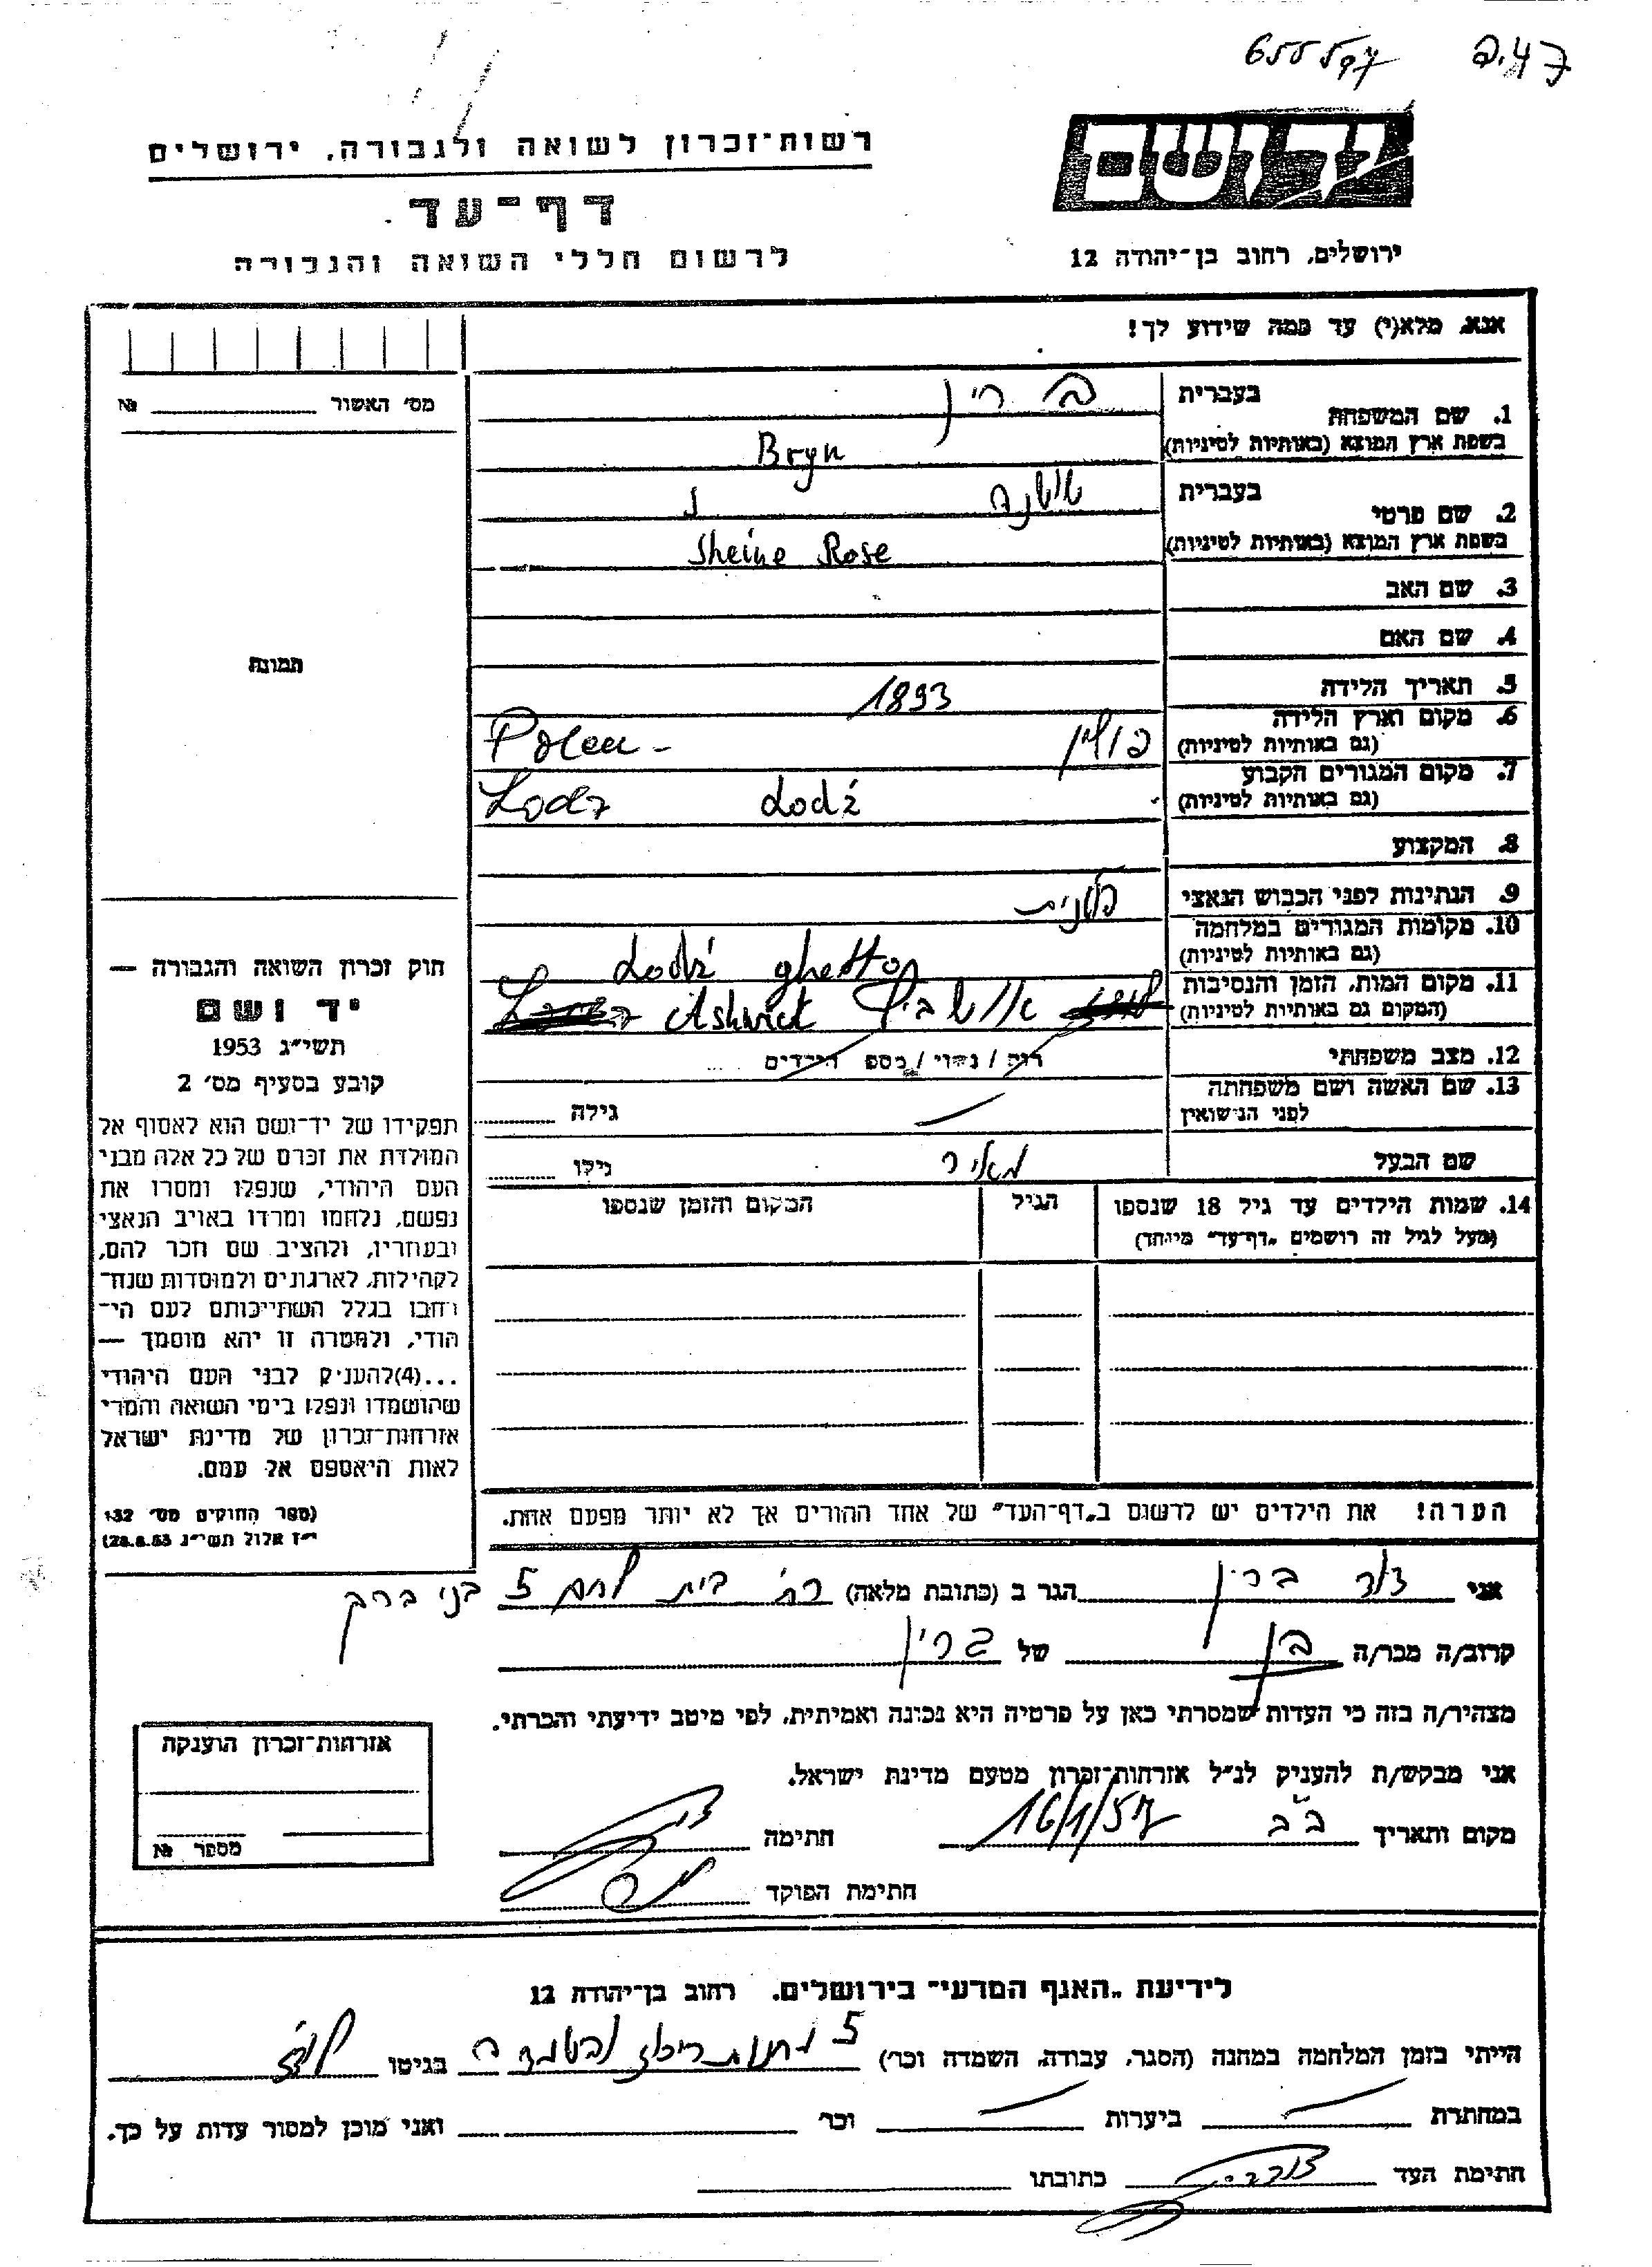 655
רשות־זכרון לשואה ולגבורה, ירושלים
דף־עד
לרשום חללי השואה והגבורה
יד ושם
ירושלים, רחוב בן־יהודה 12
אנא, מלא(י) עד כמה שידוע לך!
מס' האשור №
1. שם המשפחה בעברית ברין
בשפת ארץ המוצא (באותיות לטיניות) Bryn
2. שם פרטי בעברית שושנה
בשפת ארץ המוצא (באותיות לטיניות) Sheine Rose
3. שם האב
4. שם האם
תמונה
5. תאריך הלידה 1893
6. מקום וארץ הלידה (גם באותיות לטיניות) פולין Polen -
7. מקום המגורים הקבוע (גם באותיות לטיניות) Lodź Lodz
8. המקצוע
9. הנתינות לפני הכבוש הנאצי פולנית
10. מקומות המגורים במלחמה (גם באותיות לטיניות) Lodź ghetto
11. מקום המות, הזמן והנסיבות (המקום גם באותיות לטיניות) אושביץ Ashwict
12. מצב משפחתי רוק / נשוי / מספ הילדים
13. שם האשה ושם משפחתה לפני הנישואין גילה
שם הבעל מאיר גילו
14. שמות הילדים עד גיל 18 שנספו הגיל המקום והזמן שנספו
(מעל לגיל זה רושמים „דף־עד" מיוחד)
חוק זכרון השואה והגבורה —
יד ושם
תשי"ג 1953
קובע בסעיף מס' 2
תפקידו של יד־ושם הוא לאסוף אל
המולדת את זכרם של כל אלה מבני
העם היהודי, שנפלו ומסרו את
נפשם, נלחמו ומרדו באויב הנאצי
ובעוזריו, ולהציב שם וזכר להם,
לקהילות, לארגונים ולמוסדות שנח־
רבו בגלל השתייכותם לעם הי־
הודי, ולמטרה זו יהא מוסמך —
...(4)להעניק לבני העם היהודי
שהושמדו ונפלו בימי השואה והמרי
אזרחות־זכרון של מדינת ישראל
לאות היאספם אל עמם.
(ספר החוקים מס' 132
י"ז אלול תשי"ג 28.8.53)
הערה! את הילדים יש לרשום ב„דף־העד" של אחד ההורים אך לא יותר מפעם אחת.
אני דוד ברין הגר ב (כתובת מלאה) רח' בית לחם 5 בני ברק
קרוב/ה מכר/ה בן של ברין
מצהיר/ה בזה כי העדות שמסרתי כאן על פרטיה היא נכונה ואמיתית, לפי מיטב ידיעתי והכרתי.
אני מבקש/ת להעניק לנ"ל אזרחות־זכרון מטעם מדינת ישראל.
מקום ותאריך ב"ב 16/1/57 חתימה
חתימת הפוקד
אזרחות־זכרון הוענקה
מספר №
לידיעת „האגף המדעי" בירושלים, רחוב בן־יהודה 12
הייתי בזמן המלחמה במחנה (הסגר, עבודה, השמדה וכו') 5 מחנות ריכוז והשמדה בגיטו לודז
במחתרת ביערות וכו' ואני מוכן למסור עדות על כך.
חתימת העד כתובתו